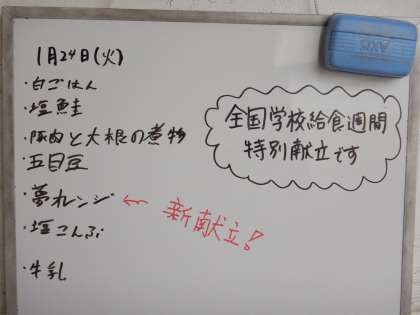 1月24日(火)
・白ごはん
・塩鮭
・豚肉と大根の煮物
・五目豆
・夢オレンジ ← 新献立!
・塩こんぶ
・牛乳
全国学校給食週間
特別献立です
AXIS